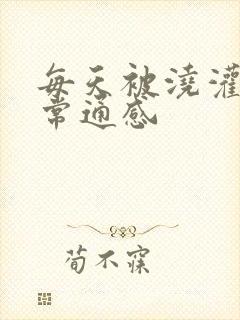 每天被浇灌
常通感
荀不寐